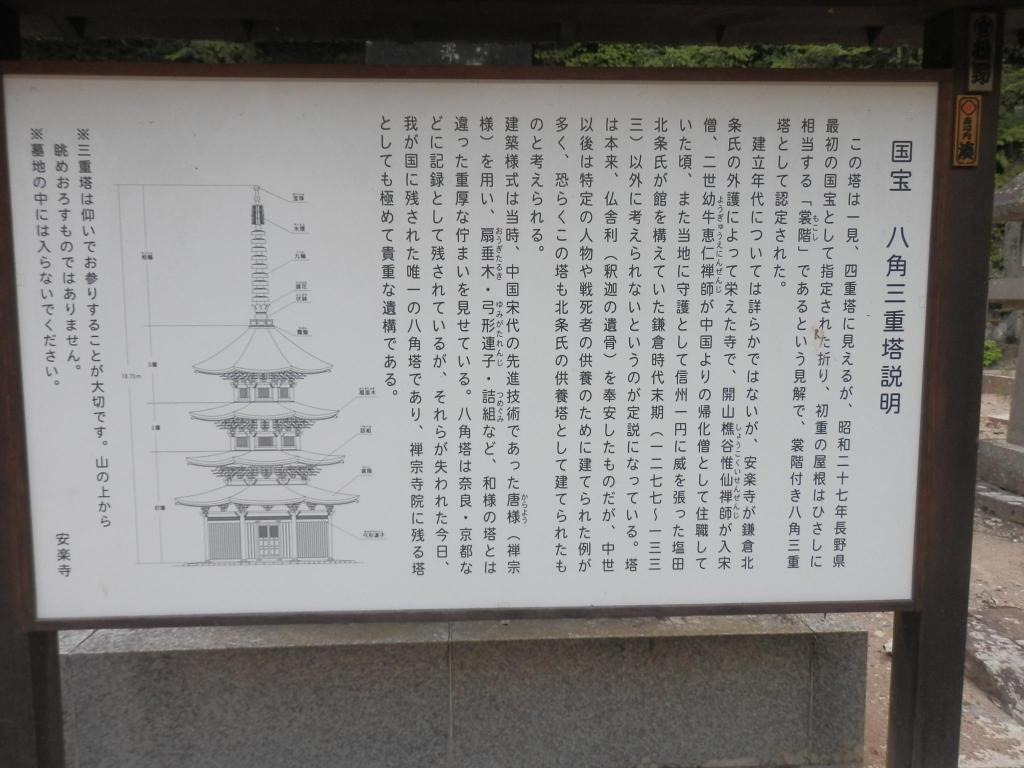 国宝　八角三重塔説明
この塔は一見、四重塔に見えるが、昭和二十七年長野県
最初の国宝として指定された折り、初重の屋根はひさしに
相当する「裳階」であるという見解で、裳階付き八角三重
もこし
塔として認定された。
建立年代については詳らかではないが、安楽寺が鎌倉北
条氏の外護によって栄えた寺で、開山樵谷惟仙禅師が入宋
しょうこくいせんぜんじ
僧、二世幼牛恵仁禅師が中国よりの帰化僧として住職して
ようぎゅうえにんぜんじ
いた頃、また当地に守護として信州一円に威を張った塩田
北条氏が館を構えていた鎌倉時代末期（一二七七～一三三
三）以外に考えられないというのが定説になっている。塔
は本来、仏舎利（釈迦の遺骨）を奉安したものだが、中世
以後は特定の人物や戦死者の供養のために建てられた例が
多く、恐らくこの塔も北条氏の供養塔として建てられたも
のと考えられる。
建築様式は当時、中国宋代の先進技術であった唐様（禅宗
からよう
様）を用い、扇垂木・弓形連子・詰組など、和様の塔とは
おうぎたるき　ゆみがたれんじ　つめぐみ
違った重厚な佇まいを見せている。八角塔は奈良・京都な
どに記録として残されているが、それらが失われた今日、
我が国に残された唯一の八角塔であり、禅宗寺院に残る塔
としても極めて貴重な遺構である。
宝珠
水煙
九輪
請花
伏鉢
露盤
相輪
3層
2層
初層
18.75m
扇垂木
詰組
裳階
弓形連子
※三重塔は仰いでお参りすることが大切です。山の上から
眺めおろすものではありません。
※墓地の中には入らないでください。
安楽寺